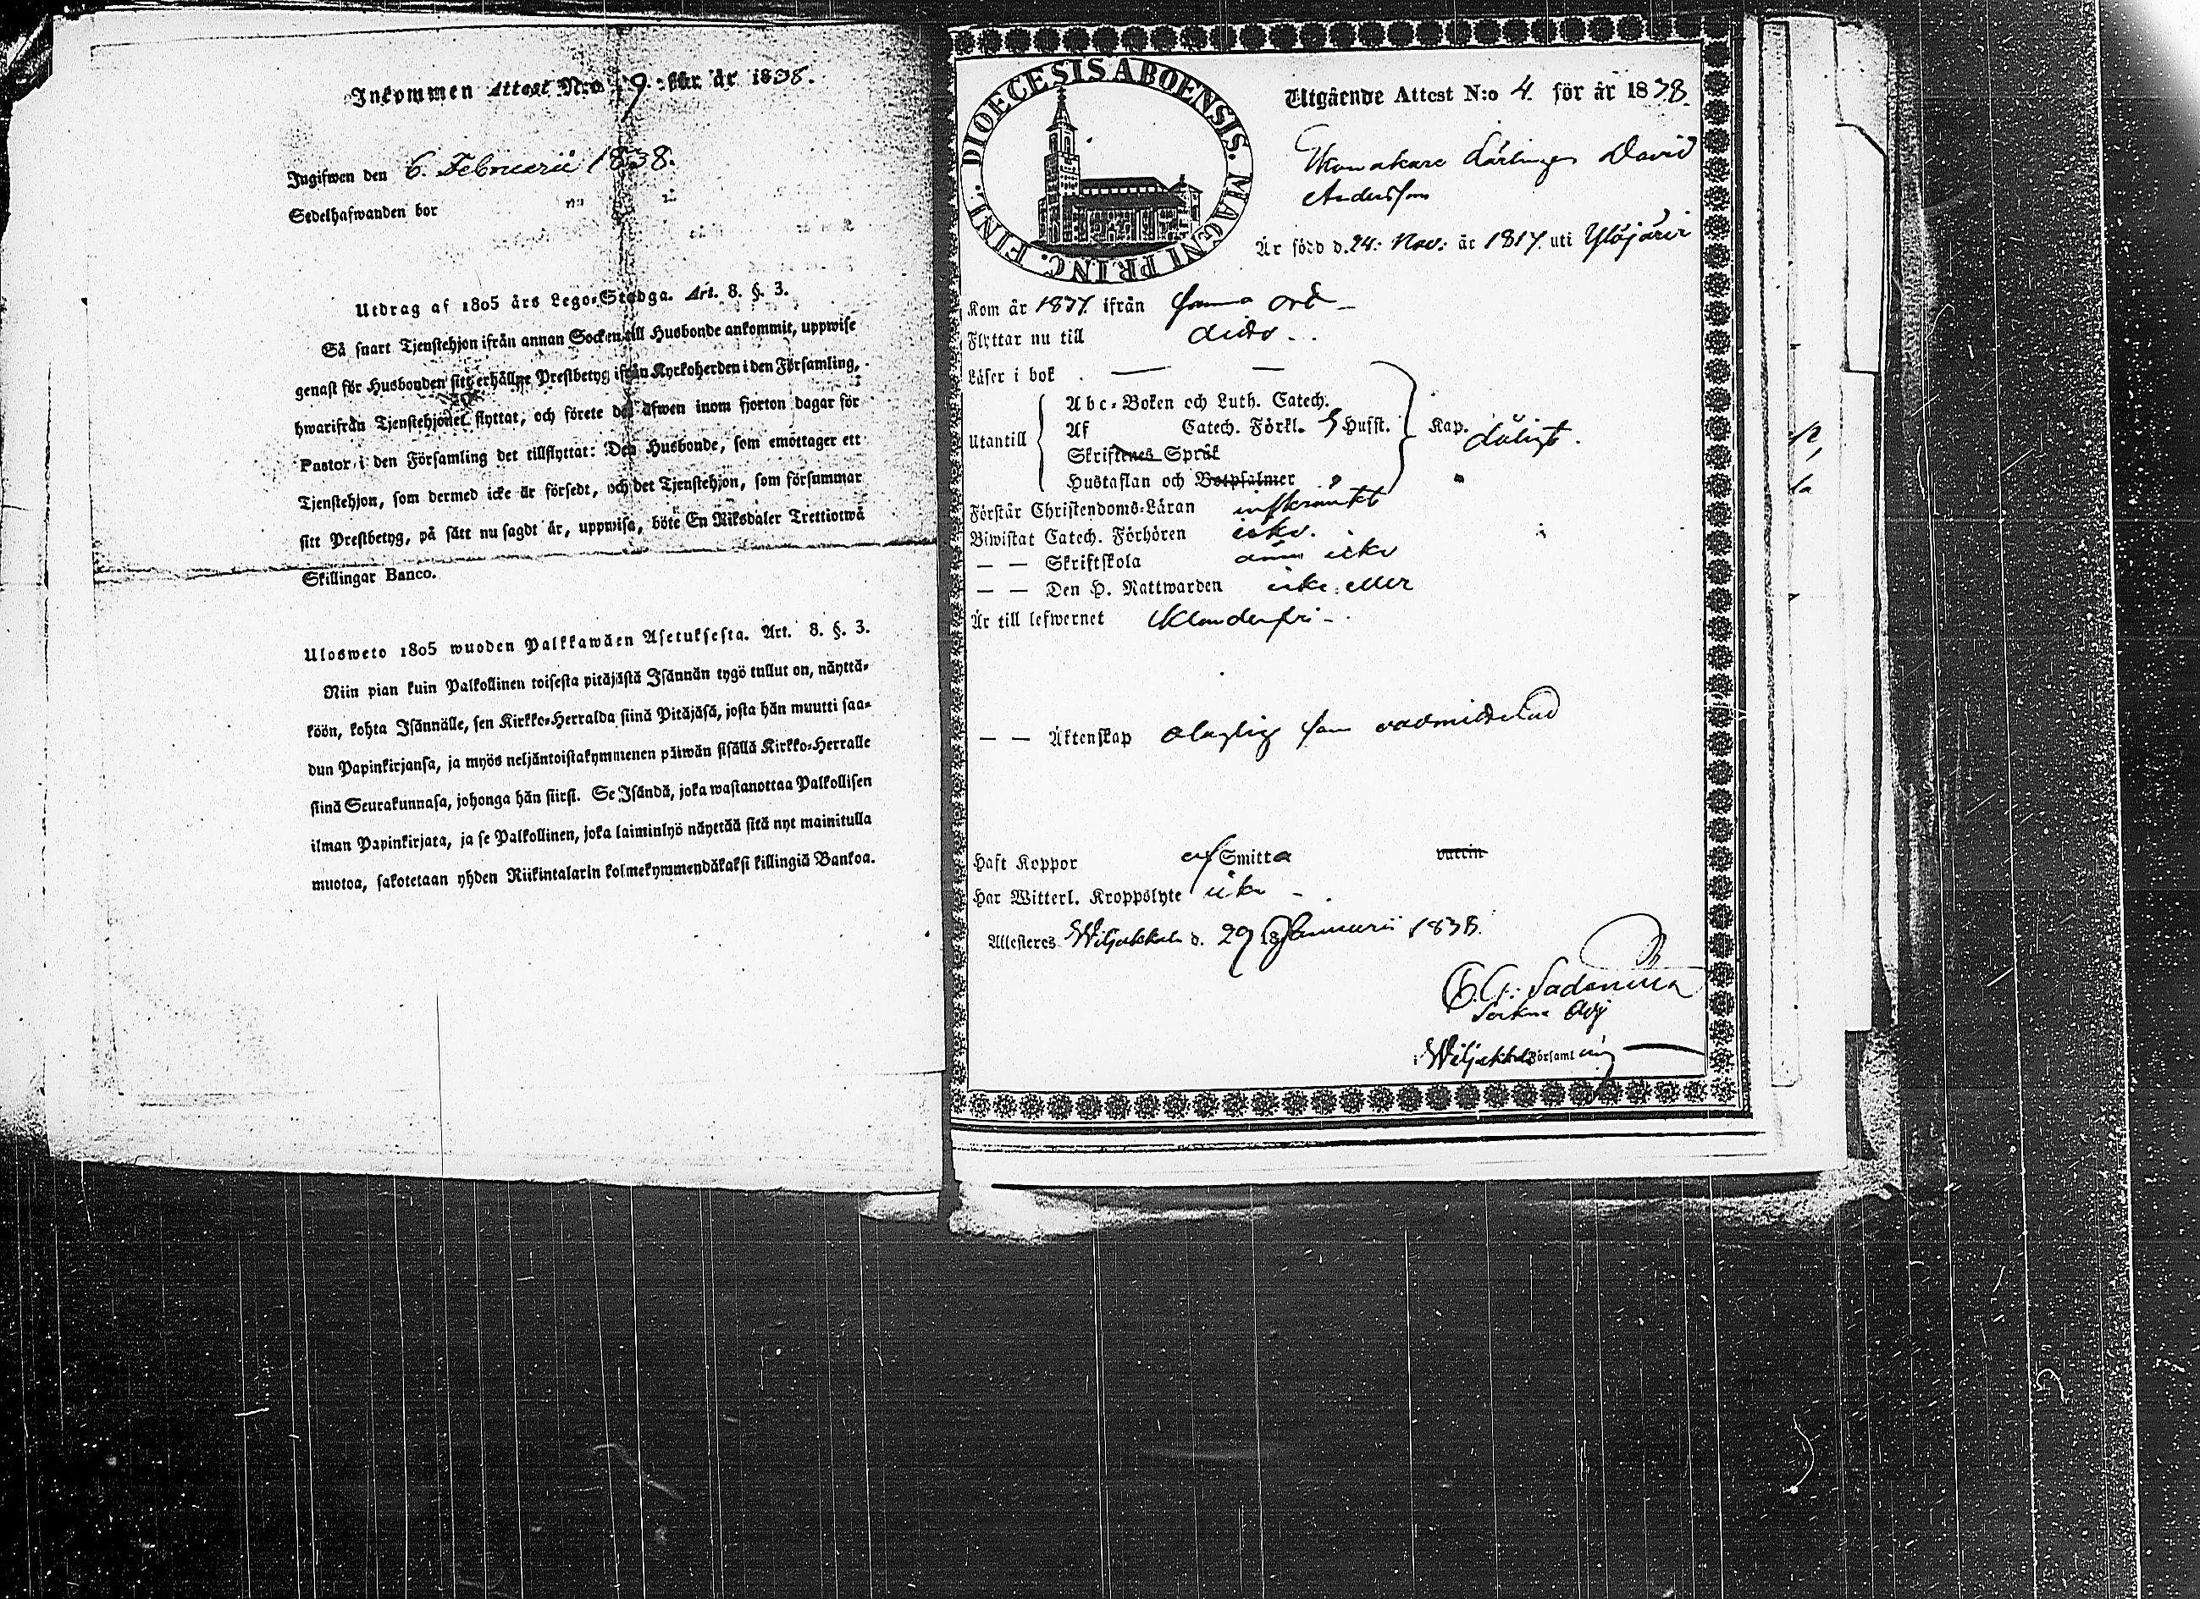 Inkommen Attest N:o 9. för år 1838.
Ingifwen den 6. Februarii 1838.
Sedelhafwanden bor
Utdrag af 1805 års Lego-Stadga. Art. 8. §. 3.
Så snart Tjenstehjon ifrån annan Socken till Husbonde ankommit, uppwise
genast för Husbonden sitt erhållne Prestbetyg ifrån Kyrkoherden i den Församling,
hwarifrån Tjenstehjonet flyttat, och förete det äfwen inom fjorton dagar för
Pastor i den Församling det tillflyttat: Den Husbonde, som emottager ett
Tjenstehjon, som dermed icke är försedt, och det Tjenstehjon, som försummar
sitt Prestbetyg, på sätt nu sagdt är, uppwisa, böte En Riksdaler Trettiotwå
Skillingar Banco.
Ulosweto 1805 wuoden Palkkawäen Asetuksesta. Art. 8. §. 3.
Niin pian kuin Palkollinen toisesta pitäjästä Isännän tygö tullut on, näyttä-
köön, kohta Isännälle, sen Kirkko-Herralda siinä Pitäjäsä, josta hän muutti saa-
dun Papinkirjansa, ja myös neljäntoistakymmenen päiwän sisällä Kirkko-Herralle
siinä Seurakunnasa, johonga hän siirsi. Se Isändä, joka wastanottaa Palkollisen
ilman Papinkirjata, ja se Palkollinen, joka laiminlyö näyttää sitä nyt mainitulla
muotoa, sakotetaan yhden Riikintalarin kolmekymmendäkaksi killingiä Bankoa.
DIOECESIS ABOENSIS. MAGNI PRINC. FINL.
Utgående Attest N:o 4. för år 1838.
Lärlingen David
Andersson
Är född d. 24. Nov: år 1817. uti Ylöjärvi
Kom år 1837. ifrån samma ort
Flyttar nu till dito.
Läser i bok
Utantill
Abc-Boken och Luth. Catech.
Af Catech. Förkl. 5 Hufst. Kap. dåligt.
Skriftenes Språk
Hustaflan och Botpsalmer
Förstår Christendoms-Läran inskränkt
Biwistat Catech. Förhören icke.
— — Skriftskola ännu icke
— — Den H. Nattwarden icke eller
Är till lefwernet Klanderfri
— — Äktenskap olaglig som
Haft Koppor af Smitta vaccin
Har Witterl. Kroppslyte icke
Attesteras Wiljakkala d. 29 18 Januarii 1838.
Sockne Adj
i Wiljakkala Församling